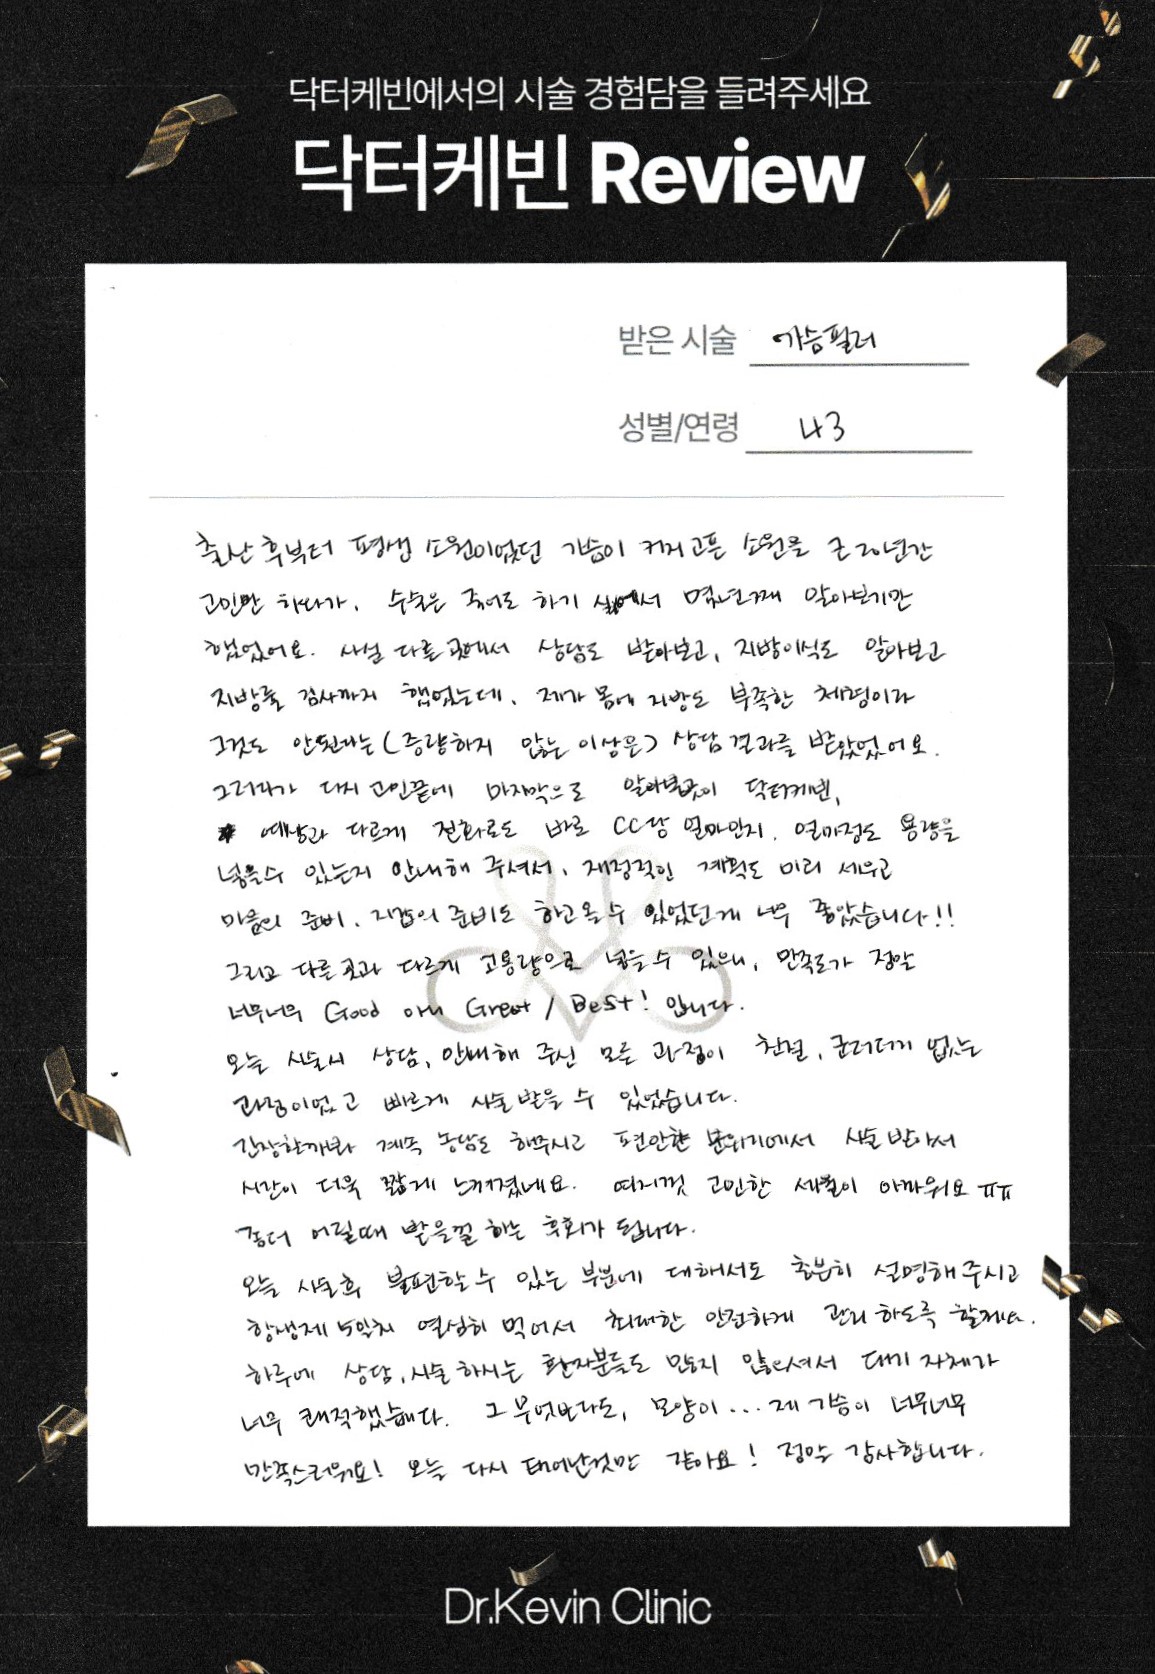 닥터케빈에서의 시술 경험담을 들려주세요
닥터케빈 Review
받은 시술 가슴필러
성별/연령 43
출산 후부터 평생 소원이었던 가슴이 커지고픈 소원을 근 20년간
고민만 하다가, 수술은 죽어도 하기 싫어서 몇년째 알아보기만
했었어요. 사실 다른 곳에서 상담도 받아보고, 지방이식도 알아보고
지방율 검사까지 했었는데, 제가 몸에 지방도 부족한 체형이라
그것도 안된다는 (증량하지 않는 이상은) 상담 결과를 받았었어요.
그러다가 다시 고민끝에 마지막으로 알아본곳이 닥터케빈,
예상과 다르게 전화로도 바로 CC당 얼마인지, 얼마정도 용량을
넣을수 있는지 안내해 주셔서, 재정적인 계획도 미리 세우고
마음의 준비, 지갑의 준비도 하고 올 수 있었던게 너무 좋았습니다!!
그리고 다른 곳과 다르게 고용량으로 넣을 수 있으니, 만족도가 정말
너무너무 Good 아니 Great / Best! 입니다.
오늘 시술시 상담, 안내해 주신 모든 과정이 친절, 군더더기 없는
과정이었고 빠르게 시술 받을 수 있었습니다.
긴장할까봐 계속 농담도 해주시고 편안한 분위기에서 시술 받아서
시간이 더욱 짧게 느껴졌네요. 여지껏 고민한 세월이 아까워요 ㅠㅠ
좀더 어릴때 받을걸 하는 후회가 됩니다.
오늘 시술후 불편할 수 있는 부분에 대해서도 충분히 설명해 주시고
항생제 5일치 열심히 먹어서 최대한 안전하게 관리 하도록 할게요.
하루에 상담, 시술 하시는 환자분들도 많지 않으셔서 대기 자체가
너무 쾌적했습니다. 그 무엇보다도, 모양이... 제 가슴이 너무너무
만족스러워요! 오늘 다시 태어난것만 같아요! 정말 감사합니다.
Dr.Kevin Clinic